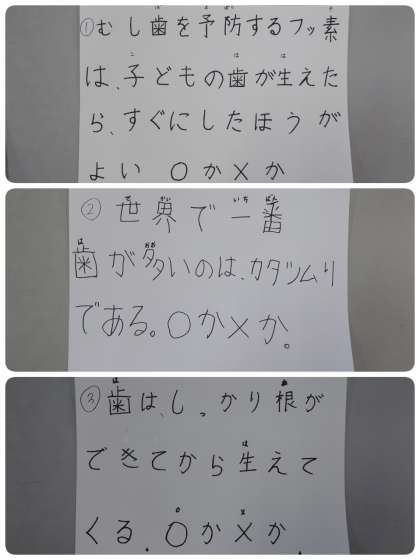 ①むし歯を予防するフッ素
は、子どもの歯が生えた
ら、すぐにしたほうが
よい ○か×か
②世界で一番
歯が多いのは、カタツムリ
である。○か×か。
③歯は、しっかり根が
できてから生えて
くる。○か×か.